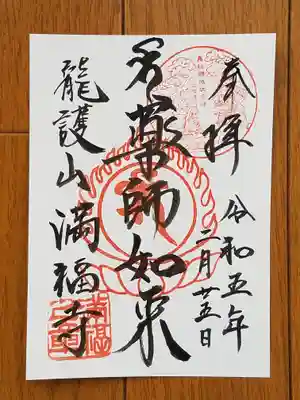 奉拜
令和五年
二月廿五日
薬師如来
龍護山満福寺